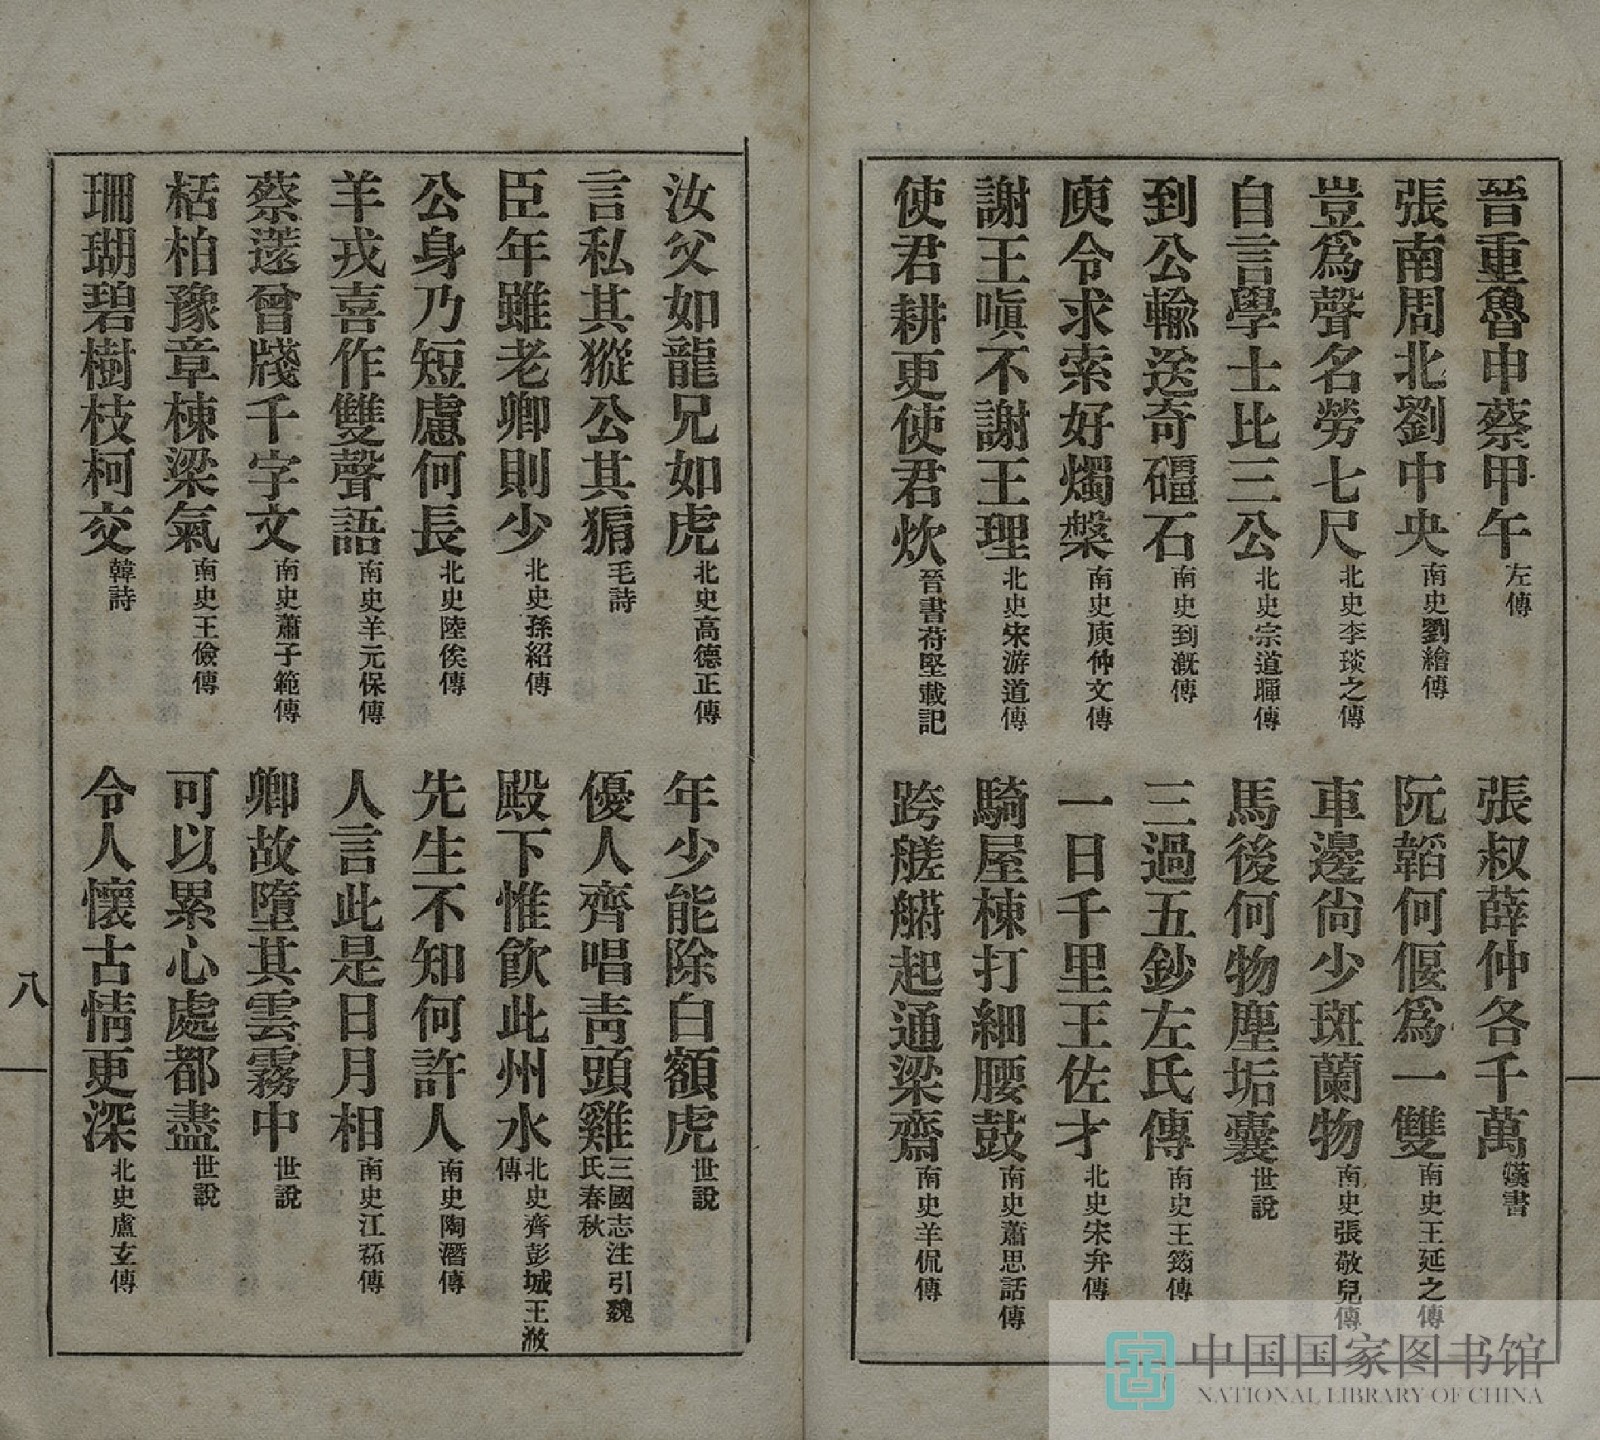 晉重魯申蔡甲午 左傳 張叔薛仲各千萬 漢書
張南周北劉中央 南史劉繪傳 阮韜何偃爲一雙 南史王延之傳
豈爲聲名勞七尺 北史李琰之傳 車邊尙少斑蘭物 南史張敬兒傳
自言學士比三公 北史宗道暉傳 馬後何物塵垢囊 世說
到公輸送奇礓石 南史到溉傳 三過五鈔左氏傳 南史王筠傳
庾令求索好燭槃 南史庾仲文傳 一日千里王佐才 北史宋弁傳
謝王嗔不謝王理 北史宋游道傳 騎屋棟打細腰鼓 南史蕭思話傳
使君耕更使君炊 晉書苻堅載記 跨艖䑰起通梁齋 南史羊侃傳
汝父如龍兄如虎 北史高德正傳 年少能除白額虎 世說
言私其豵公其豣 毛詩 優人齊唱靑頭雞 三國志注引魏氏春秋
臣年雖老卿則少 北史孫紹傳 殿下惟飮此州水 北史齊彭城王浟傳
公身乃短慮何長 北史陸俟傳 先生不知何許人 南史陶潛傳
羊戎喜作雙聲語 南史羊元保傳 人言此是日月相 南史江祏傳
蔡薳曾牋千字文 南史蕭子範傳 卿故墮其雲霧中 世說
栝柏豫章棟梁氣 南史王儉傳 可以累心處都盡 世說
珊瑚碧樹枝柯交 韓詩 令人懷古情更深 北史盧玄傳
八
中国国家图书馆
NATIONAL LIBRARY OF CHINA